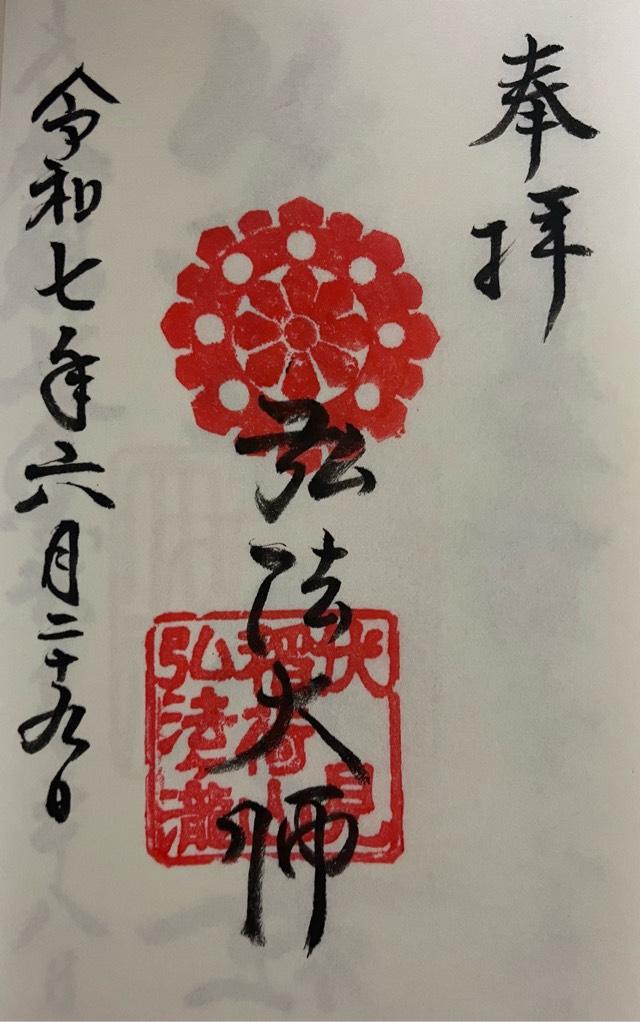 奉拝
弘法大師
令和七年六月二十九日
伏見
稲荷山
弘法瀧